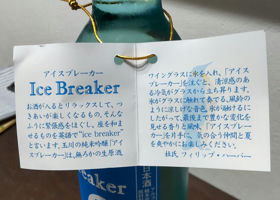 アイスブレーカー
Ice Breaker
お酒が入るとリラックスして、つ
きあいが楽しくなるもの。そんな
ふうに緊張感をほぐし、座を和ま
せるものを英語で"ice breaker"
と言います。玉川の純米吟醸「アイ
スブレーカー」は、無ろ過の生原酒。
ワイングラスに氷を入れ、「アイス
ブレーカー」を注ぐと、清涼感のあ
る気色がグラスから立ち昇ります。
氷がグラスに触れて奏でる、風鈴の
ように涼しげな音色。氷が融けるに
したがって、最後まで豊かな変化を
見せる香りと風味。「アイスブレー
カー」を片手に、気の合う仲間と夏
を爽やかにお楽しみください。
杜氏 フィリップ・ハーパー
eaker
日本酒